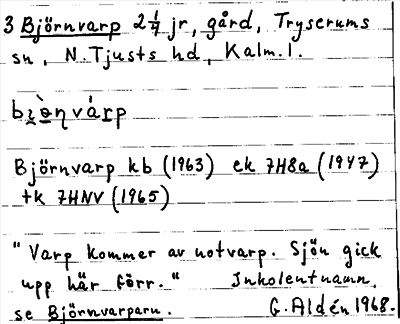 3 Björnvarp 2 1/4 jr, gård, Tryserums
sn, N. Tjusts hd, Kalm. l.
Björnvarp kb (1963) ek 7H8a (1947)
tk 7HNV (1965)
"Varp kommer av notvarp. Sjön gick
upp här förr." Inkolentnamn,
se Björnvarparn. G. Aldén 1968.